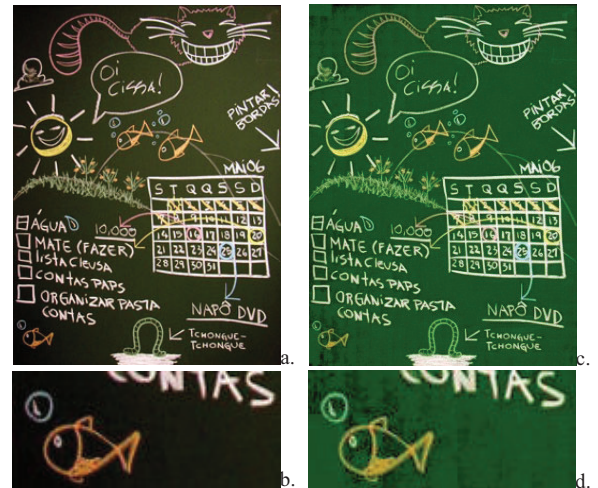 Oi
Cissa!
PINTAR!
BORDAS!
MAIO6
S T Q Q S S D
12 13
14 15 16 17 18 19 20
21 22 23 24 25 26 27
28 29 30 31
ÁGUA
10.000
MATE (FAZER)
LISTA CLEUSA
CONTAS PAPS
ORGANIZAR PASTA
CONTAS
NAPÔ DVD
TCHONGUE-
TCHONGUE
a.
Oi
Cissa!
PINTAR!
BORDAS!
MAIO6
S T Q Q S S D
12 13
14 15 16 17 18 19 20
21 22 23 24 25 26 27
28 29 30 31
ÁGUA
10.000
MATE (FAZER)
LISTA CLEUSA
CONTAS PAPS
ORGANIZAR PASTA
CONTAS
NAPÔ DVD
TCHONGUE-
TCHONGUE
c.
CONTAS
b.
CONTAS
d.